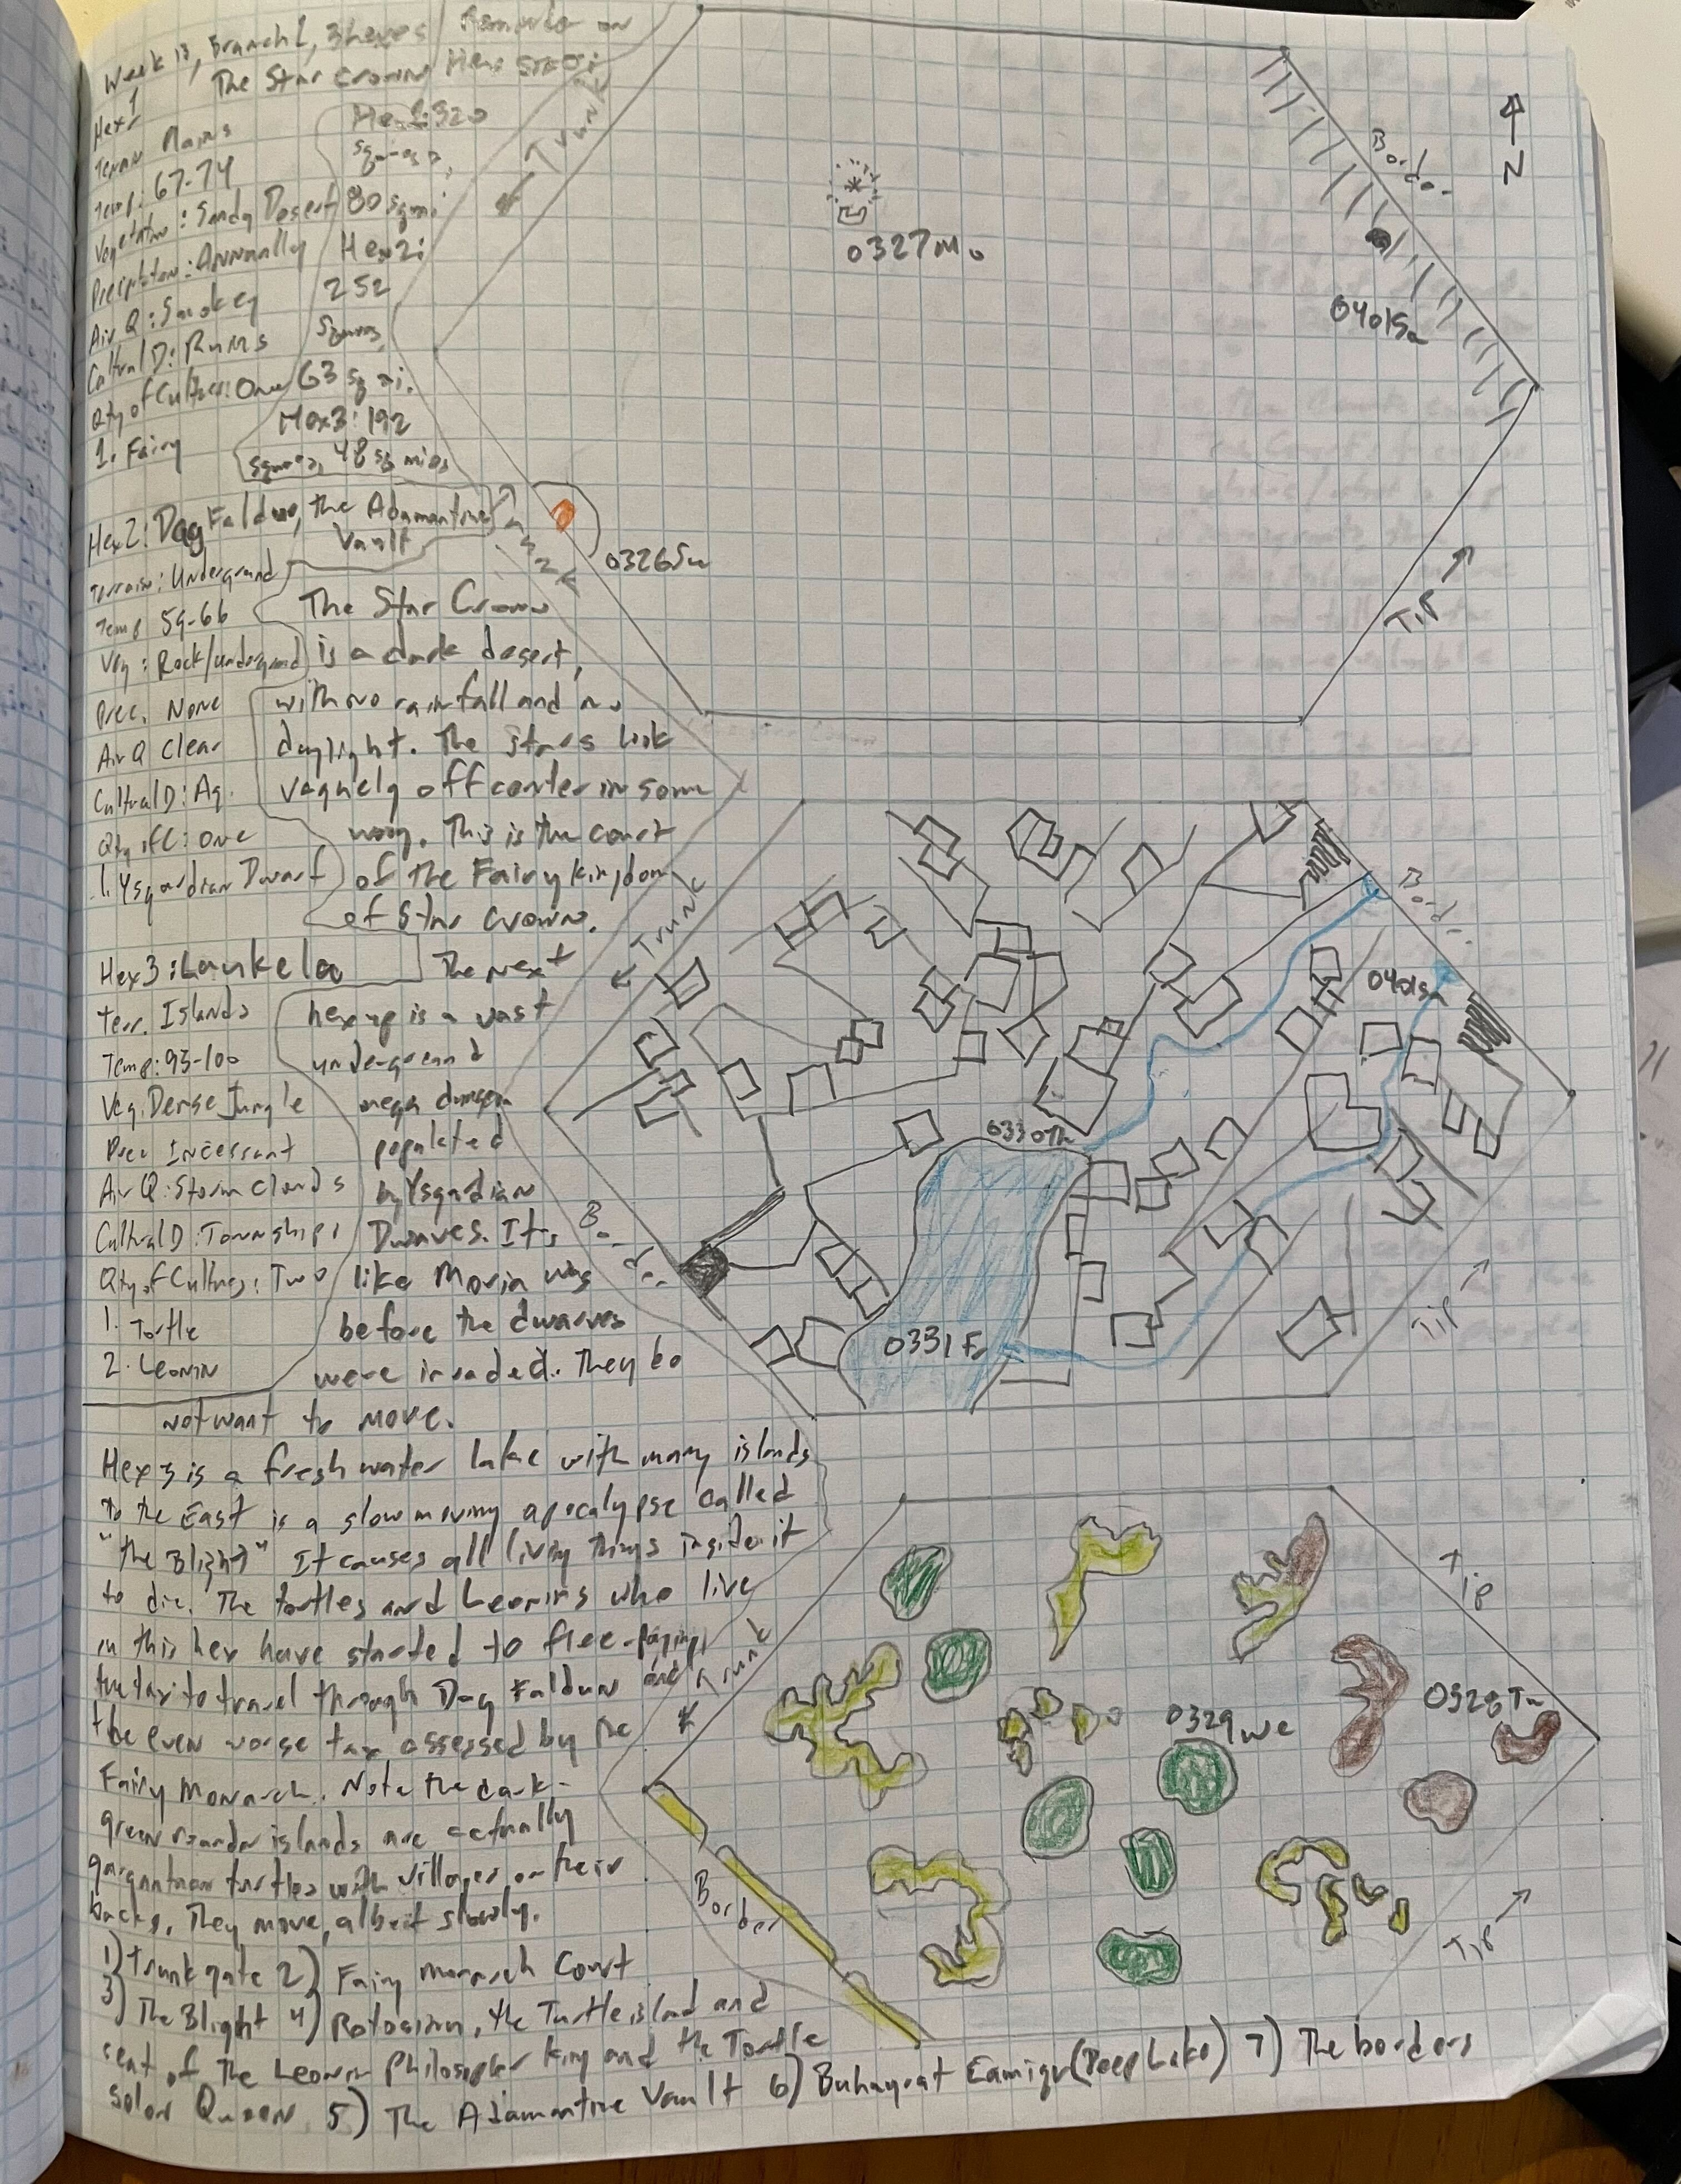 Week 13, Branch 1, 3 hexes
The Star Crown
Hex 1
Terrain Plains
Temp: 67-74
Vegetation: Sandy Desert
Precipitation: Annually
Air Q: Smokey
Cultural D: Ruins
Qty of Cultures: One
1. Fairy
Hex 1: 320
squares,
80 sq mi
Hex 2:
252
Squares,
63 sq mi.
Hex 3: 192
squares, 48 sq miles
Hex2: Dag Faldun, the Adamantine
Vault
Terrain: Underground
Temp 59-66
Veg: Rock/underground
Prec. None
Air Q Clear
Cultural D: Ag.
Qty of C: one
1. Ysgardian Dwarf
The Star Crown
is a dark desert,
with no rainfall and no
daylight. The stars look
vaguely off center in some
way. This is the court
of the Fairy kingdom
of Star Crown.
Hex 3: Laukeloa
Terr. Islands
Temp: 93-100
Veg. Dense Jungle
Prec Incessant
Air Q: Storm clouds
Cultural D: Townships
Qty of Cultures: Two
1. Tortle
2. Leonin
The next
hex up is a vast
underground
mega dungeon
populated
by Ysgardian
Dwarves. It's
like Moria was
before the dwarves
were invaded. They do
not want to move.
Hex 3 is a fresh water lake with many islands
To the East is a slow moving apocalypse called
"the Blight" It causes all living things inside it
to die. The tortles and Leonins who live
in this hex have started to flee-paying
the tax to travel through Dag Faldun and
the even worse tax assessed by the
Fairy Monarch. Note the dark-
green rounder islands are actually
gargantuan turtles with villages on their
backs. They move, albeit slowly.
1) Trunk gate 2) Fairy Monarch Court
3) The Blight 4) the Turtle island and
seat of the Leonin Philosopher King and the Tortle
Solon Queen 5) The Adamantine Vault 6) Buhayrat Eamiqu (Deep Lake) 7) The borders
← Trunk
0327Mo
Border
N
0401Sa
0326Su
Tip
← Trunk
Border
0401Sa
0330Th
Border
0331Fr
Tip
Trunk
Tip
0328Tu
0329We
Border
Tip